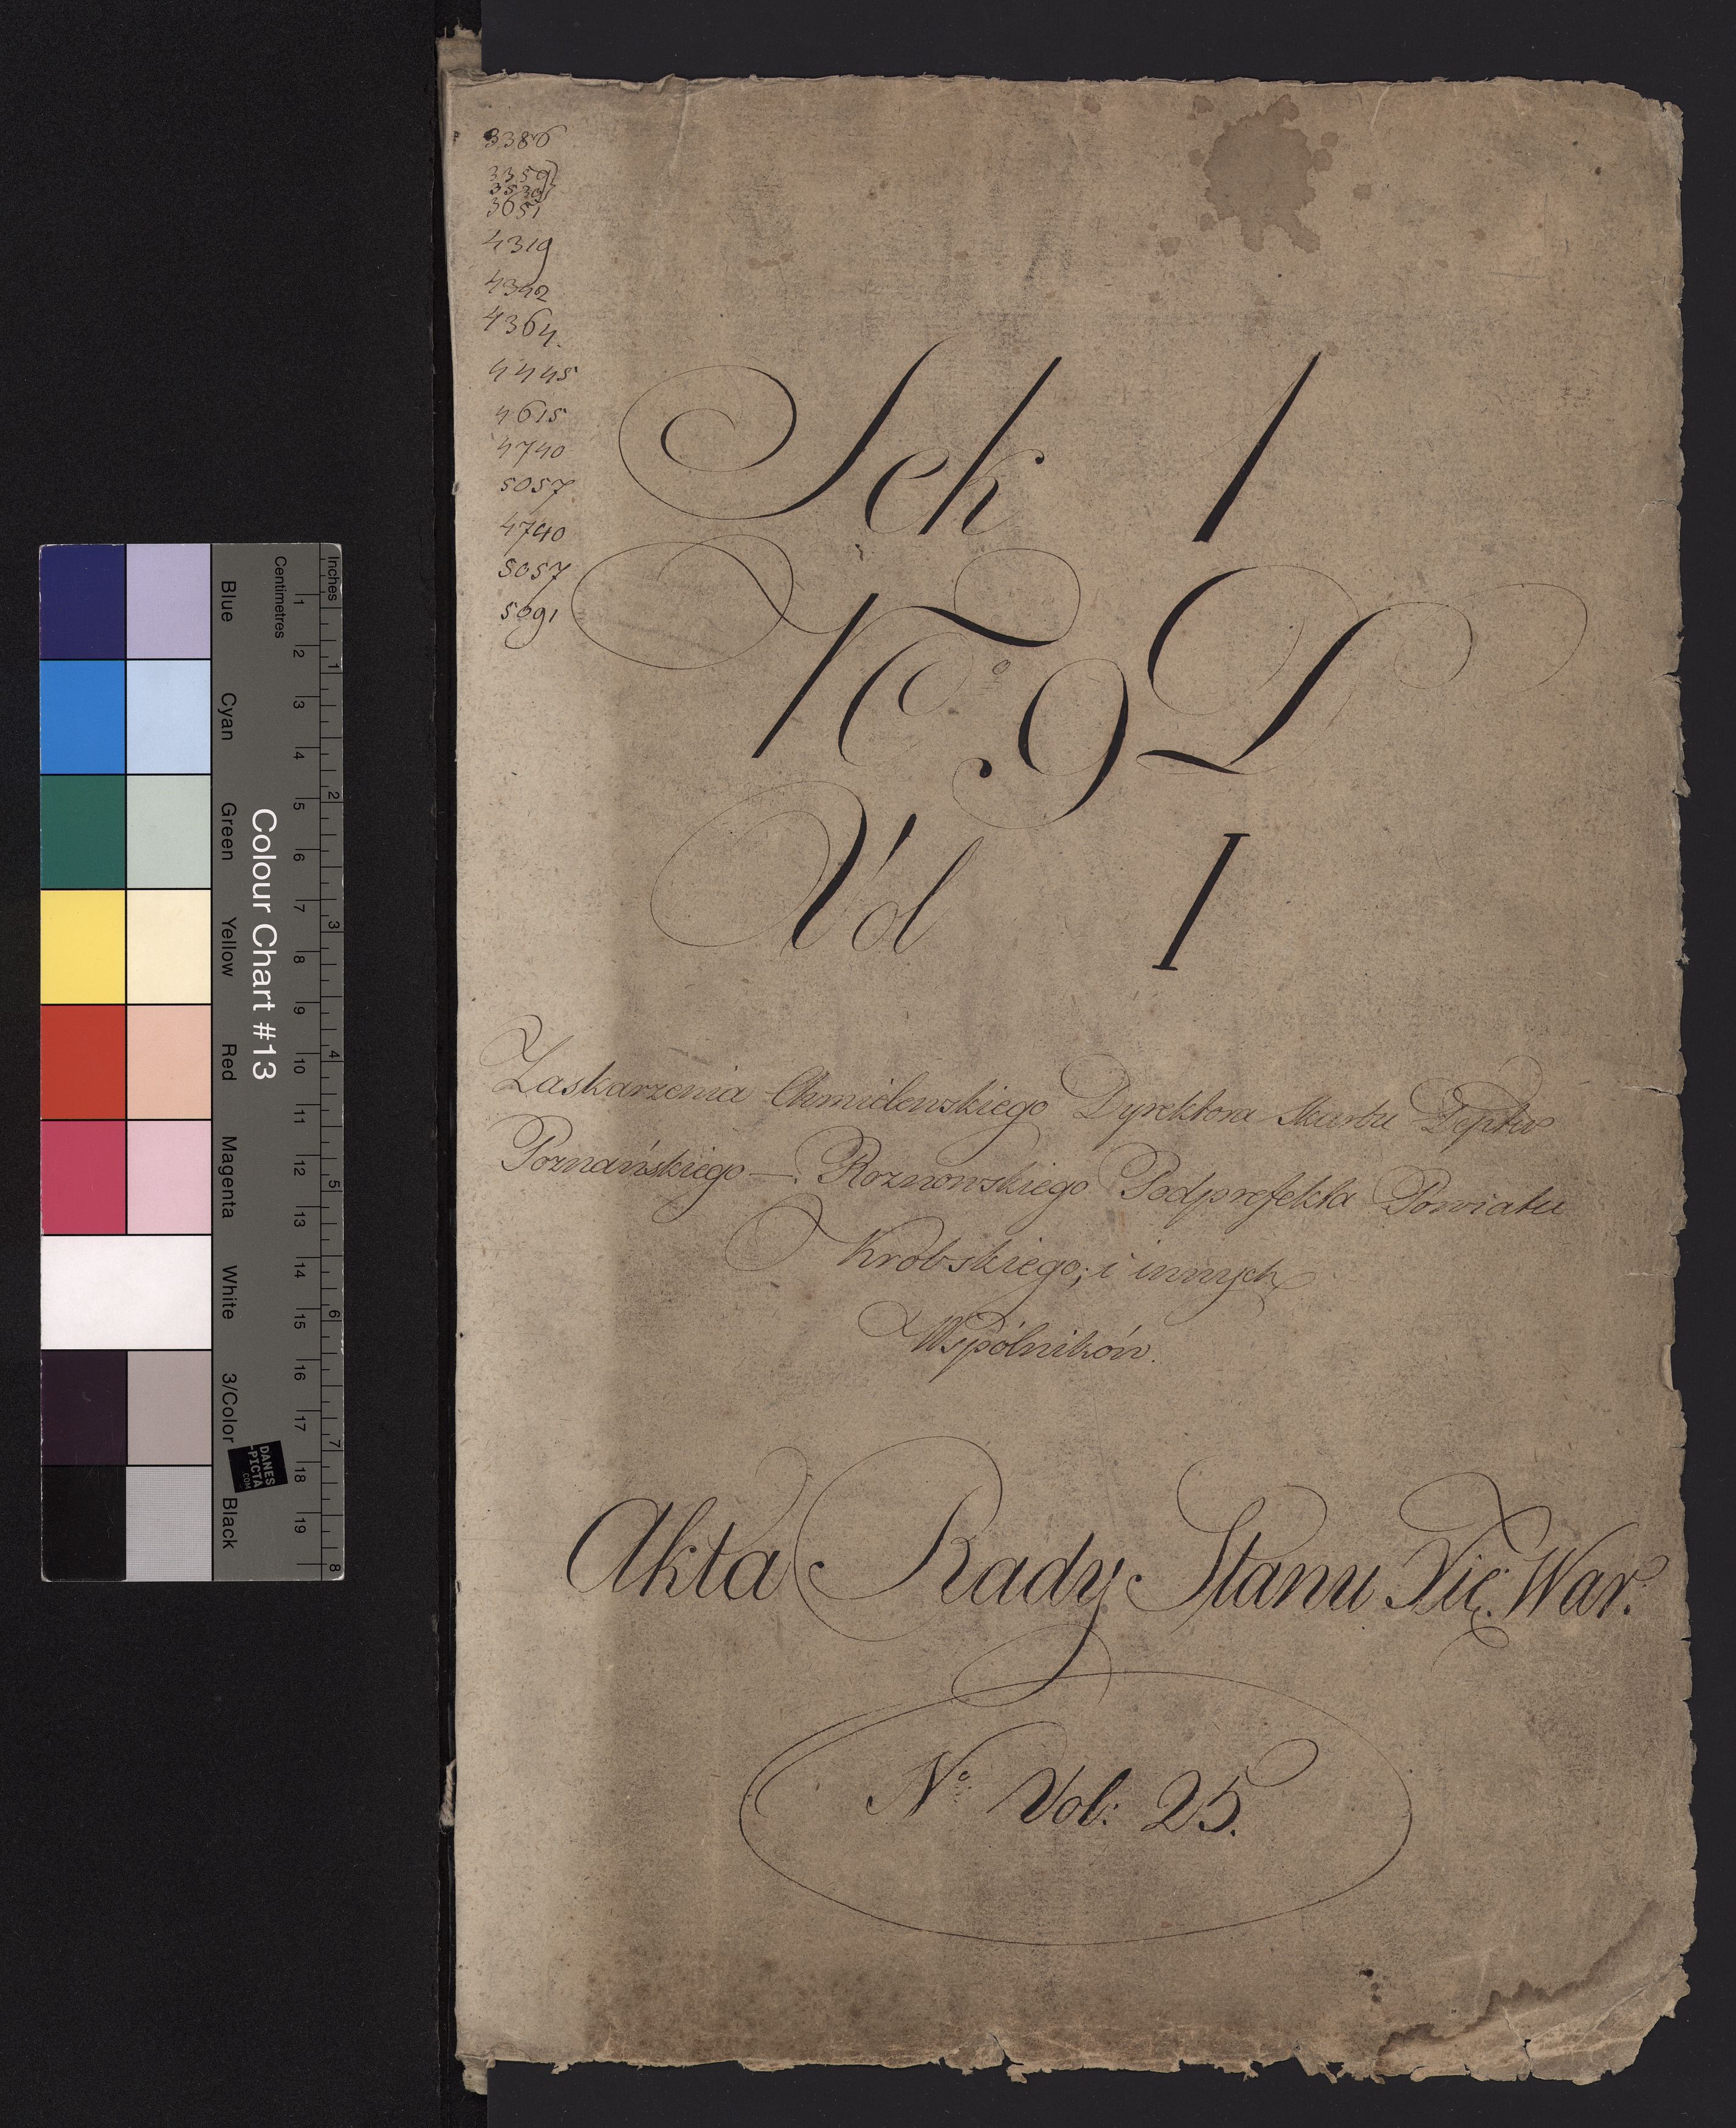 3386
3359
3530
3651
4319
4342
4364.
4445
4615
4740
5057
4740
5057
5091
Sek I
No 9 D
Vol I
Zaskarzenia Chmielewskiego Dyrektora Skarbu Deptu
Poznańskiego — Roznowskiego Podprefekta Powiatu
Krobskiego; i innych
Wspólników.
Akta Rady Stanu Xię: War:
No Vol: 25.
Inches
Centimetres
1 2 3 4 5 6 7 8
1 2 3 4 5 6 7 8 9 10 11 12 13 14 15 16 17 18 19
Colour Chart #13
Blue
Cyan
Green
Yellow
Red
Magenta
White
3/Color
Black
DANES
-PICTA
.COM